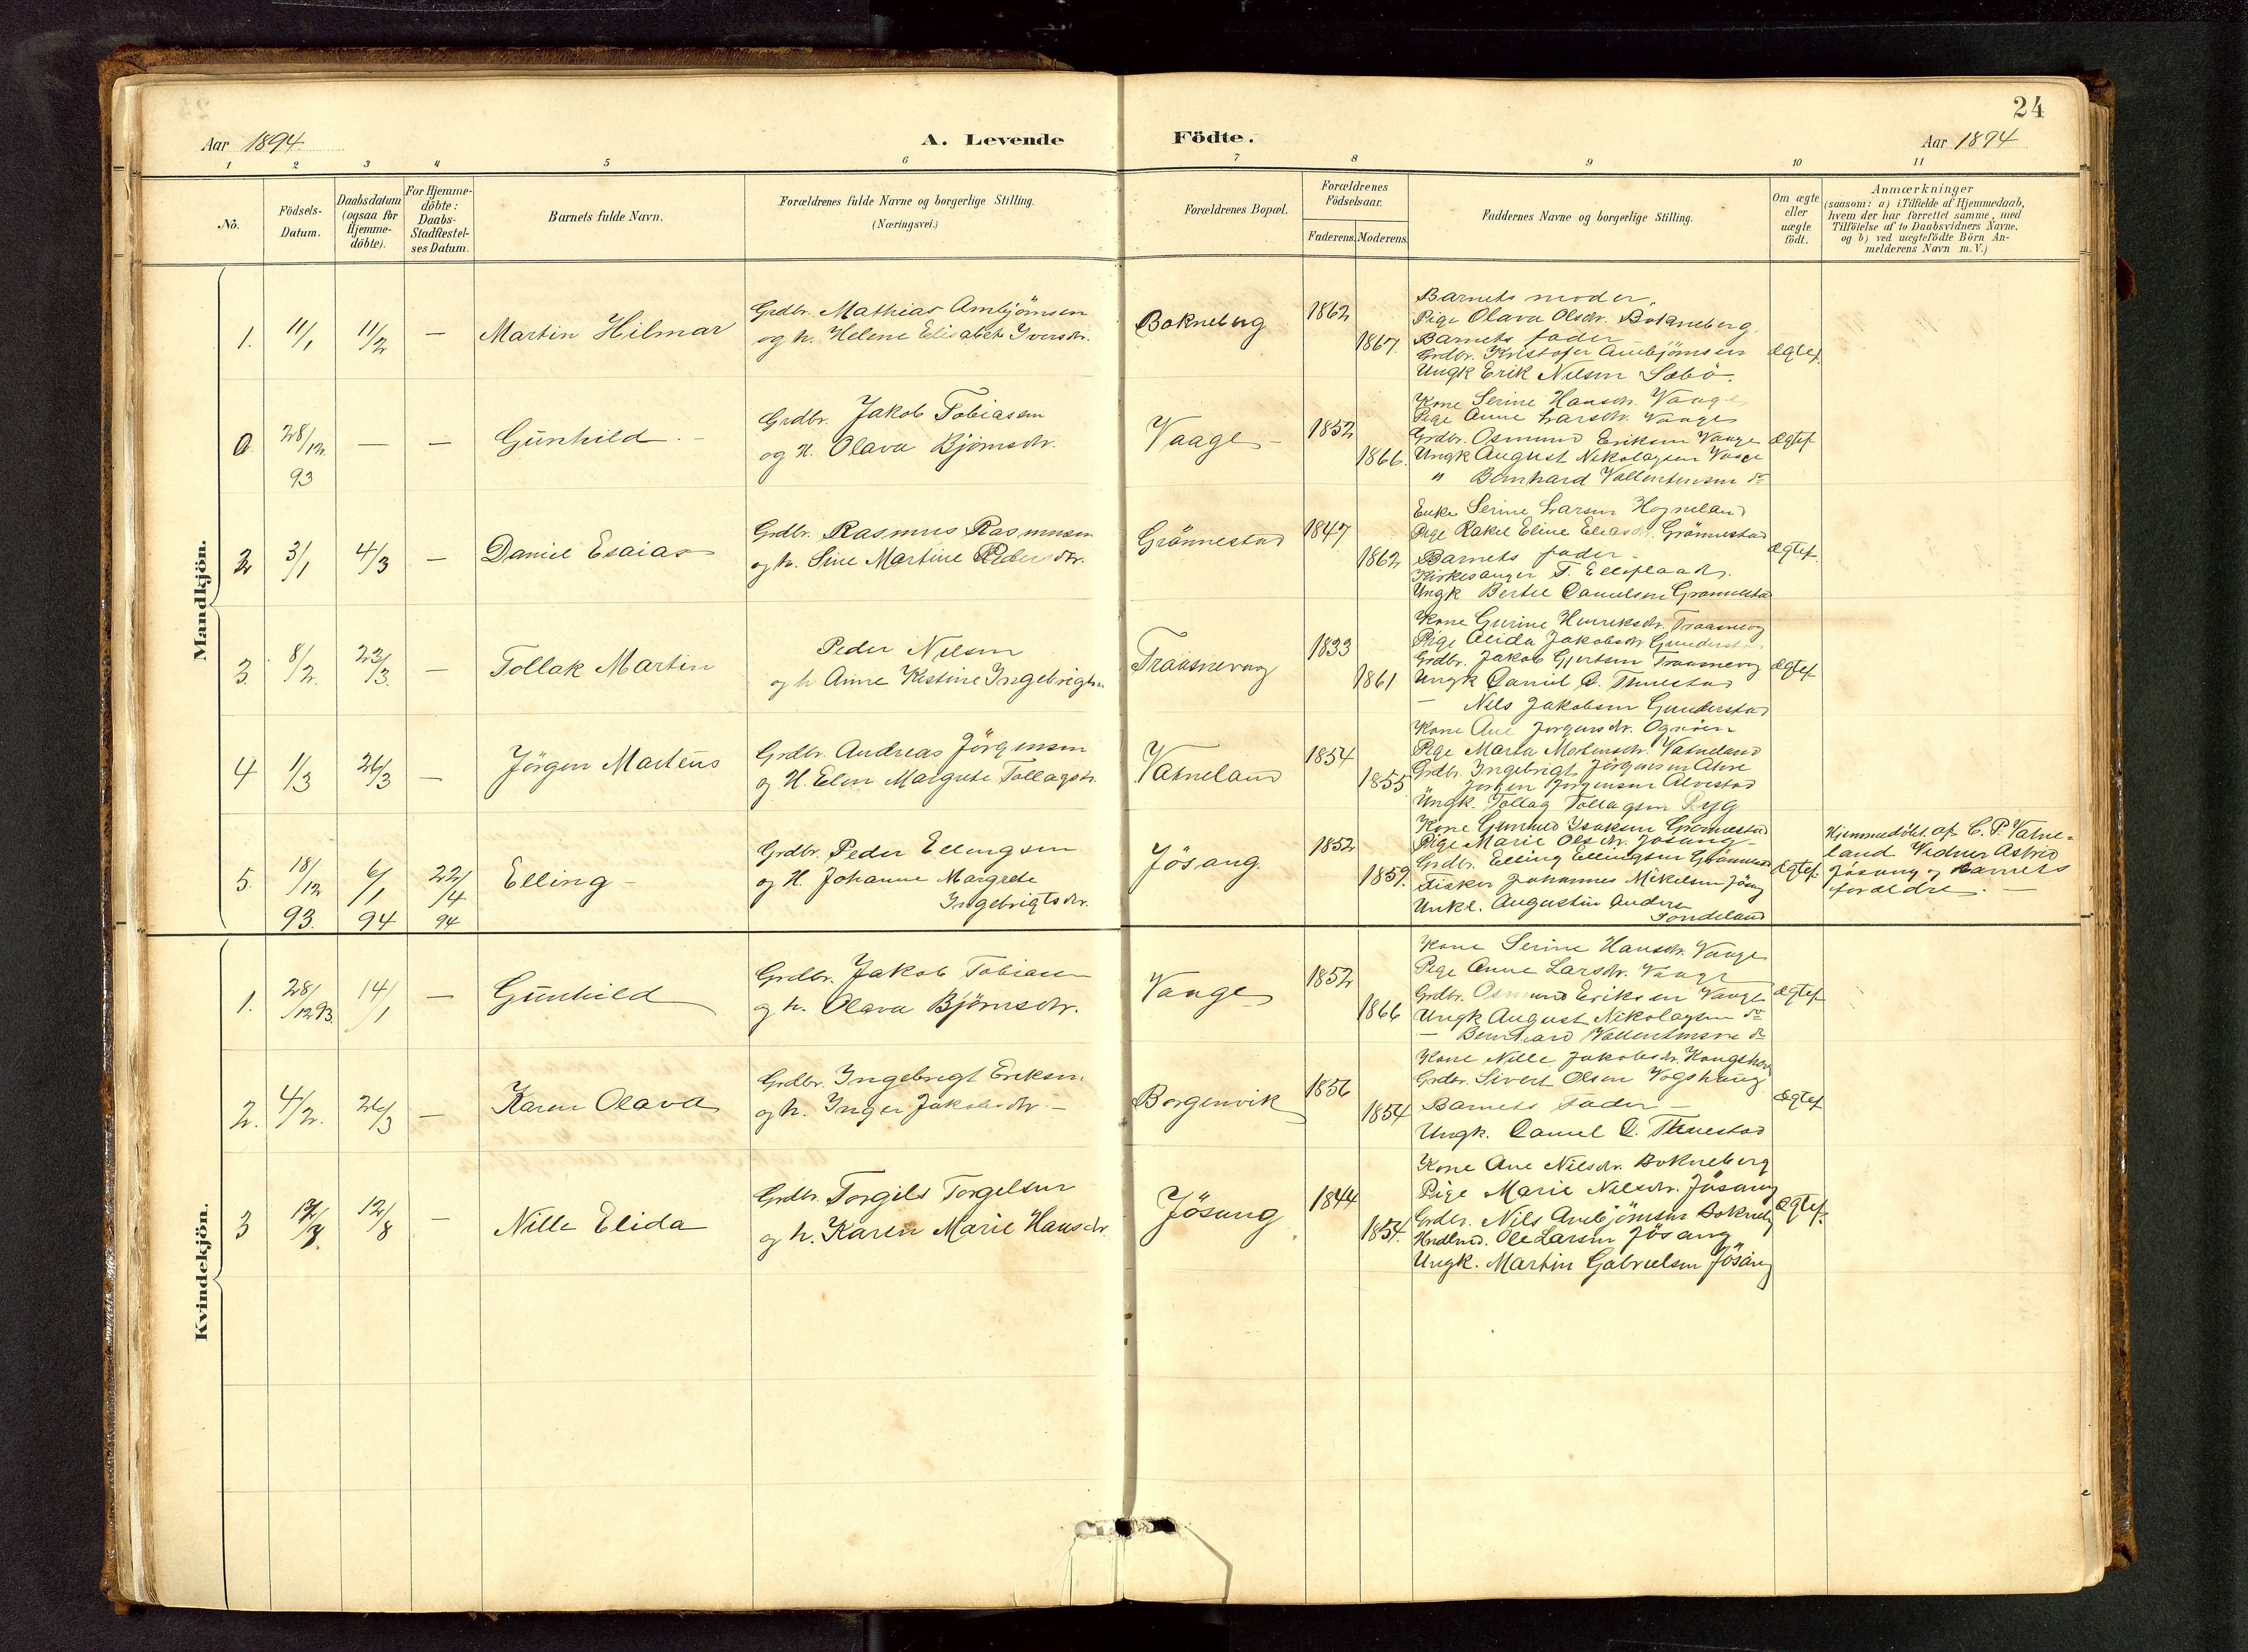 24
Aar 1894.
A. Levende Födte.
Aar 1894
1 2 3 4 5 6 7 8 9 10 11
No.
Födsels-
Datum.
Daabsdatum
(ogsaa for
Hjemme-
döbte).
For Hjemme-
döbte:
Daabs-
Stadfæstel-
ses Datum.
Barnets fulde Navn.
Forældrenes fulde Navne og borgerlige Stilling.
(Næringsvei.)
Forældrenes Bopæl.
Forældrenes
Födselsaar.
Faderens. Moderens.
Faddernes Navne og borgerlige Stilling.
Om ægte
eller
uægte
födt.
Anmærkninger
(saasom: a) i Tilfælde af Hjemmedaab,
hvem der har forrettet samme, med
Tilföielse af to Daabsvidners Navne.
og b) ved uægtefödte Börn An-
melderens Navn m. V.)
Mandkjön.
1. 11/1 11/2 — Martin Hilmar
Grdbr. Mathias Ambjörnsen
og h. Helene Elisabeth Iversdr.
Bokneberg
1862
1867.
Barnets moder.
Pige Olava Olsdr. Bokneberg.
Barnets fader
Grdbr. Kristofer Ambjörnsen
Ungk Erik Nilsen Sæbö.
Ægtef.
0. 28/12 93 — — Gunhild. -
Grdbr. Jakob Tobiasen
og H. Olava Bjørnsdr.
Vaage -
1852
1866.
Kone Serine Hansdr. Vaage
Pige Anne Larsdr. Vaage
Grdbr. Osmund Eriksen Vaage
Ungk August Nikolaysen Vaage
" Bernhard Vallentinsen do
Ægtef
2 3/1 4/3 — Daniel Esaias
Grdbr. Rasmus Rasmussen
og h. Sine Martine Pedersdr.
Grönnestad
1847
1862
Enke Serine Larsen Hogneland
Pige Rakel Eline Eliasdr. Grönnestad
Barnets fader -
Kirkesanger T.
Ungk Bertel Danielsen Grønnestad
Ægtef.
3. 8/2. 23/3. — Tollak Martin
Peder Nilsen
og h Anne Kistine Ingebrigtsn
Traasnevaag
1833
1861
Kone Gurine Henriksdr. Traasnevg
Pige Alida Jakobsdr Gunderstad
Grdbr. Jakob Gjertsen Traasnevog
Ungk Daniel D. Thuestad
— Nils Jakobsen Gunderstad
Ægtef
4 1/3 26/3 — Jörgen Martēus
Grdbr. Andreas Jörgensen
og H. Elen Margrete Tollagsdr.
Vatneland
1854
1855
Kone Ane Jørgensdr. Ognøen
Pige Marta Mortensdr. Vatneland
Grdbr. Ingebrigt Jörgensen AHre
Jørgen Jørgensen Alvestad
Ungk. Tollag Tollagsen Ryg
5. 18/12 93. 6/1 94 22/4 94 Elling -
Grdbr. Peder Ellingsen
og H. Johanne Margrete
Ingebrigtsdr.
Jösang.
1852
1859.
Kone Gunhild Isaksen Grønnestad
Pige Marie Olsdr. Jösang -
Grdbr. Elling Ellingsen Grønnestad
Fisker Johannes Mikelsen Jösang
Unkl. Augustin Anders
Sondeland
Ægtef
Hjemmedöbt af C. P. Vatne=
land Vidner Astrid
Jösang og barnets
forældre. —
Kvindekjön.
1. 28/12 93. 14/1 — Gunhild
Grdbr. Jakob Tobiasen
og h. Olava Björnsdr.
Vaage
1852
1866
Kone Serine Hansdr. Vaage
Pige Anne Larsdr. Vaage
Grdbr. Osmund Eriksen Vaage
Ungk August Nikolaysen do
— Bernhard Vallentinsen do
Ægtef
2. 4/2. 26/3 — Karen Olava
Grdbr. Ingebrigt Eriksen.
og h. Inger Jakobsdr -
Borgenvik
1856
1854
Kone Nille Jakobsdr. Kongshavn
Grdbr. Sivert Olsen Vogshaug
Barnets Fader —
Ungk. Daniel D. Thuestad
Ægtef
3 12/8 — Nille Elida
Grdbr. Torgils Torgelsen
og h. Karen Marie Hansdr.
Jösang
1844
1854.
Kone Ane Nilsdr. Bokneberg
Pige Marie Nilsdr. Jösang
Grdbr. Nils Ambjörnsen Bokneb
Hndlmd. Ole Larsen Jösang
Ungk. Martin Gabrielsen Jösang
Ægtef.